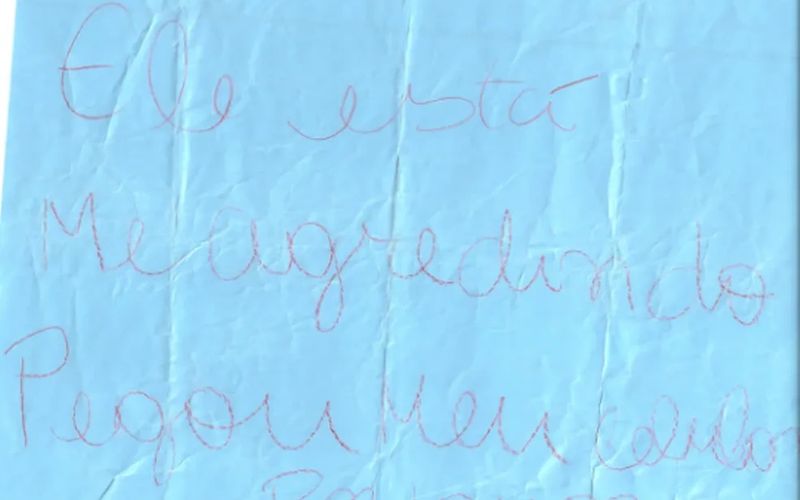 Ele está
Me agredindo
Pegou Meu